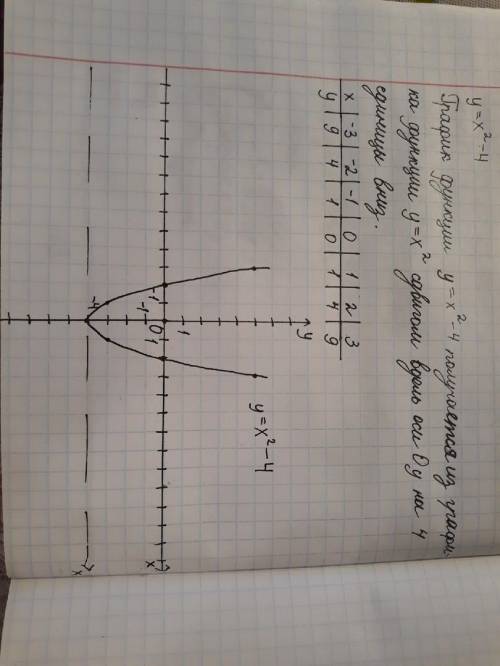 y=x²-4
График функции y=x²-4 получается из графи
ка функции y=x² сдвигом вдоль оси Oy на 4
единицы вниз.
x | -3 | -2 | -1 | 0 | 1 | 2 | 3
y | 9 | 4 | 1 | 0 | 1 | 4 | 9
y
y=x²-4
1
-1 0 1
-1
x
-4
x